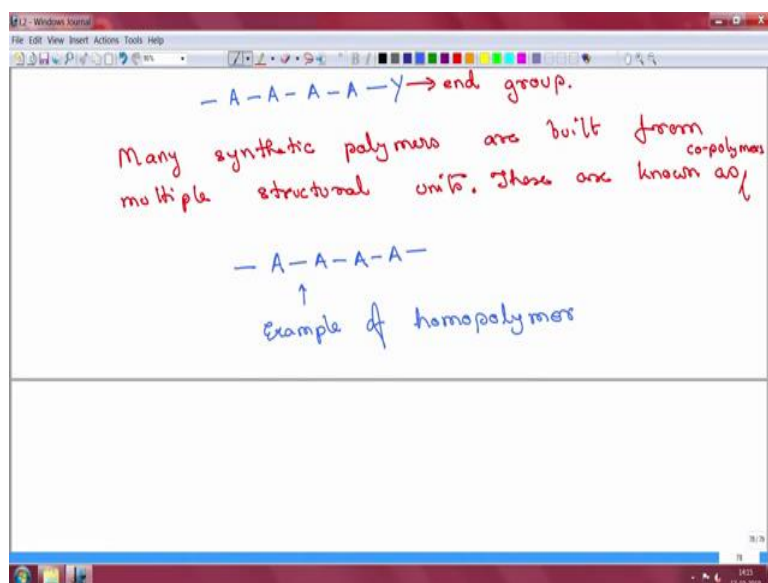 L2 - Windows Journal
File Edit View Insert Actions Tools Help
- A - A - A - A - Y → end group.
Many synthetic polymers are built from
co-polymers
multiple structural units. These are known as
- A - A - A - A -
↑
Example of homopolymer
78/78
78
14:15